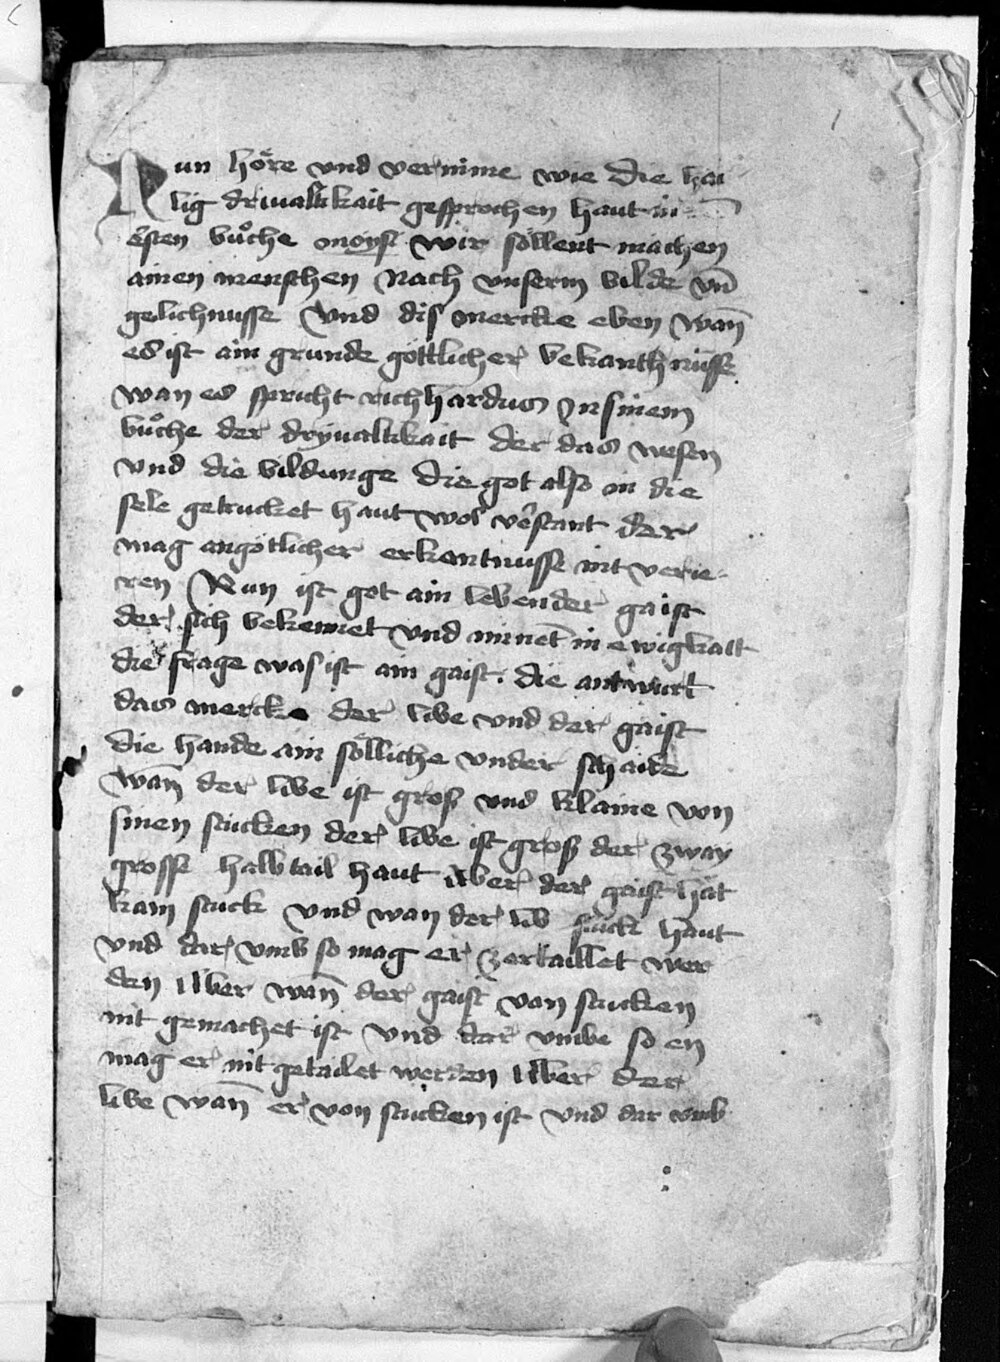 Nun höre vnd vernime wie die hai
lig driualtikait gesprochen haut in
ersten bůche moysi wir söllent machen
ainen menschen Nach vnserm bilde vn̄
gelichnusse Vnd dis mercke eben wan̄
es ist ain grunde göttlicher bekanthnüsse
wan es spricht richhardus Jn sinem
bůche der dryualtikait der das wesen
vnd die bildunge die got also in die
sele getrucket haut wol v̓stant der
mag an götlicher erkantnusse nit verir
ren Nun ist got ain lebender gaist
der sich bekennet vnd minnet in ewigkait
die frage was ist ain gaist. die antwürt
das mercke der libe vnd der gaist
die hande ain sölliche vnder schaide
wan̄ der libe ist gross vnd klaine von
sinen stucken der libe ist gross der zway
grosse halbtail haut Aber der gaist hat
kain stuck vnd wan der lib stuck haut
vnd dar vmb so mag er zertaillet wer
den Aber wan̄ der gaist von stucken
nit gemachet ist vnd dar vmbe so en
mag er nit getailet werden Aber der
libe wan̄ er von stucken ist vnd dar vmb